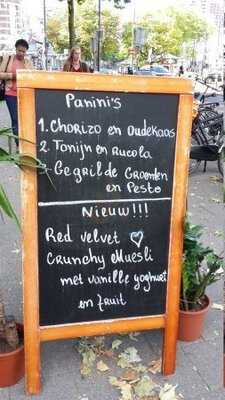 Panini's
1. Chorizo en Oudekaas
2. Tonijn en Rucola
3. Gegrilde Groenten
en Pesto
Nieuw!!!
Red velvet ♡
Crunchy Muesli
met vanille yoghurt
en fruit